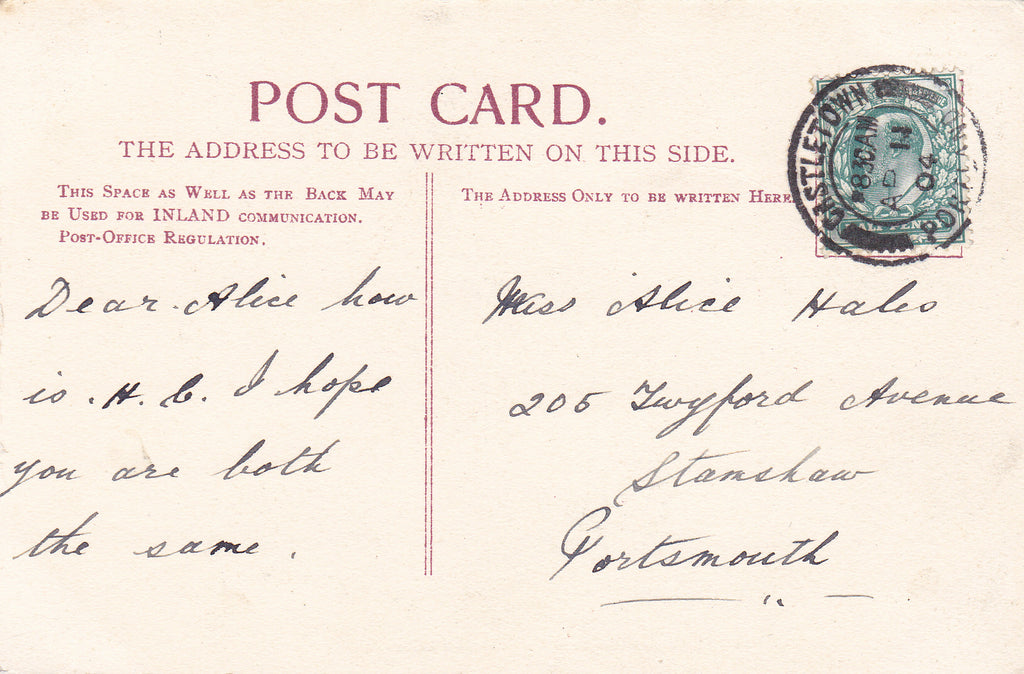 POST CARD.
THE ADDRESS TO BE WRITTEN ON THIS SIDE.
THIS SPACE AS WELL AS THE BACK MAY
BE USED FOR INLAND COMMUNICATION.
POST-OFFICE REGULATION.
THE ADDRESS ONLY TO BE WRITTEN HERE
CASTLETOWN
8 30 AM
AP 11
04
Dear Alice how
is . H. C. I hope
you are both
the same .
Miss Alice Hales
205 Twyford Avenue
Stamshaw
Portsmouth